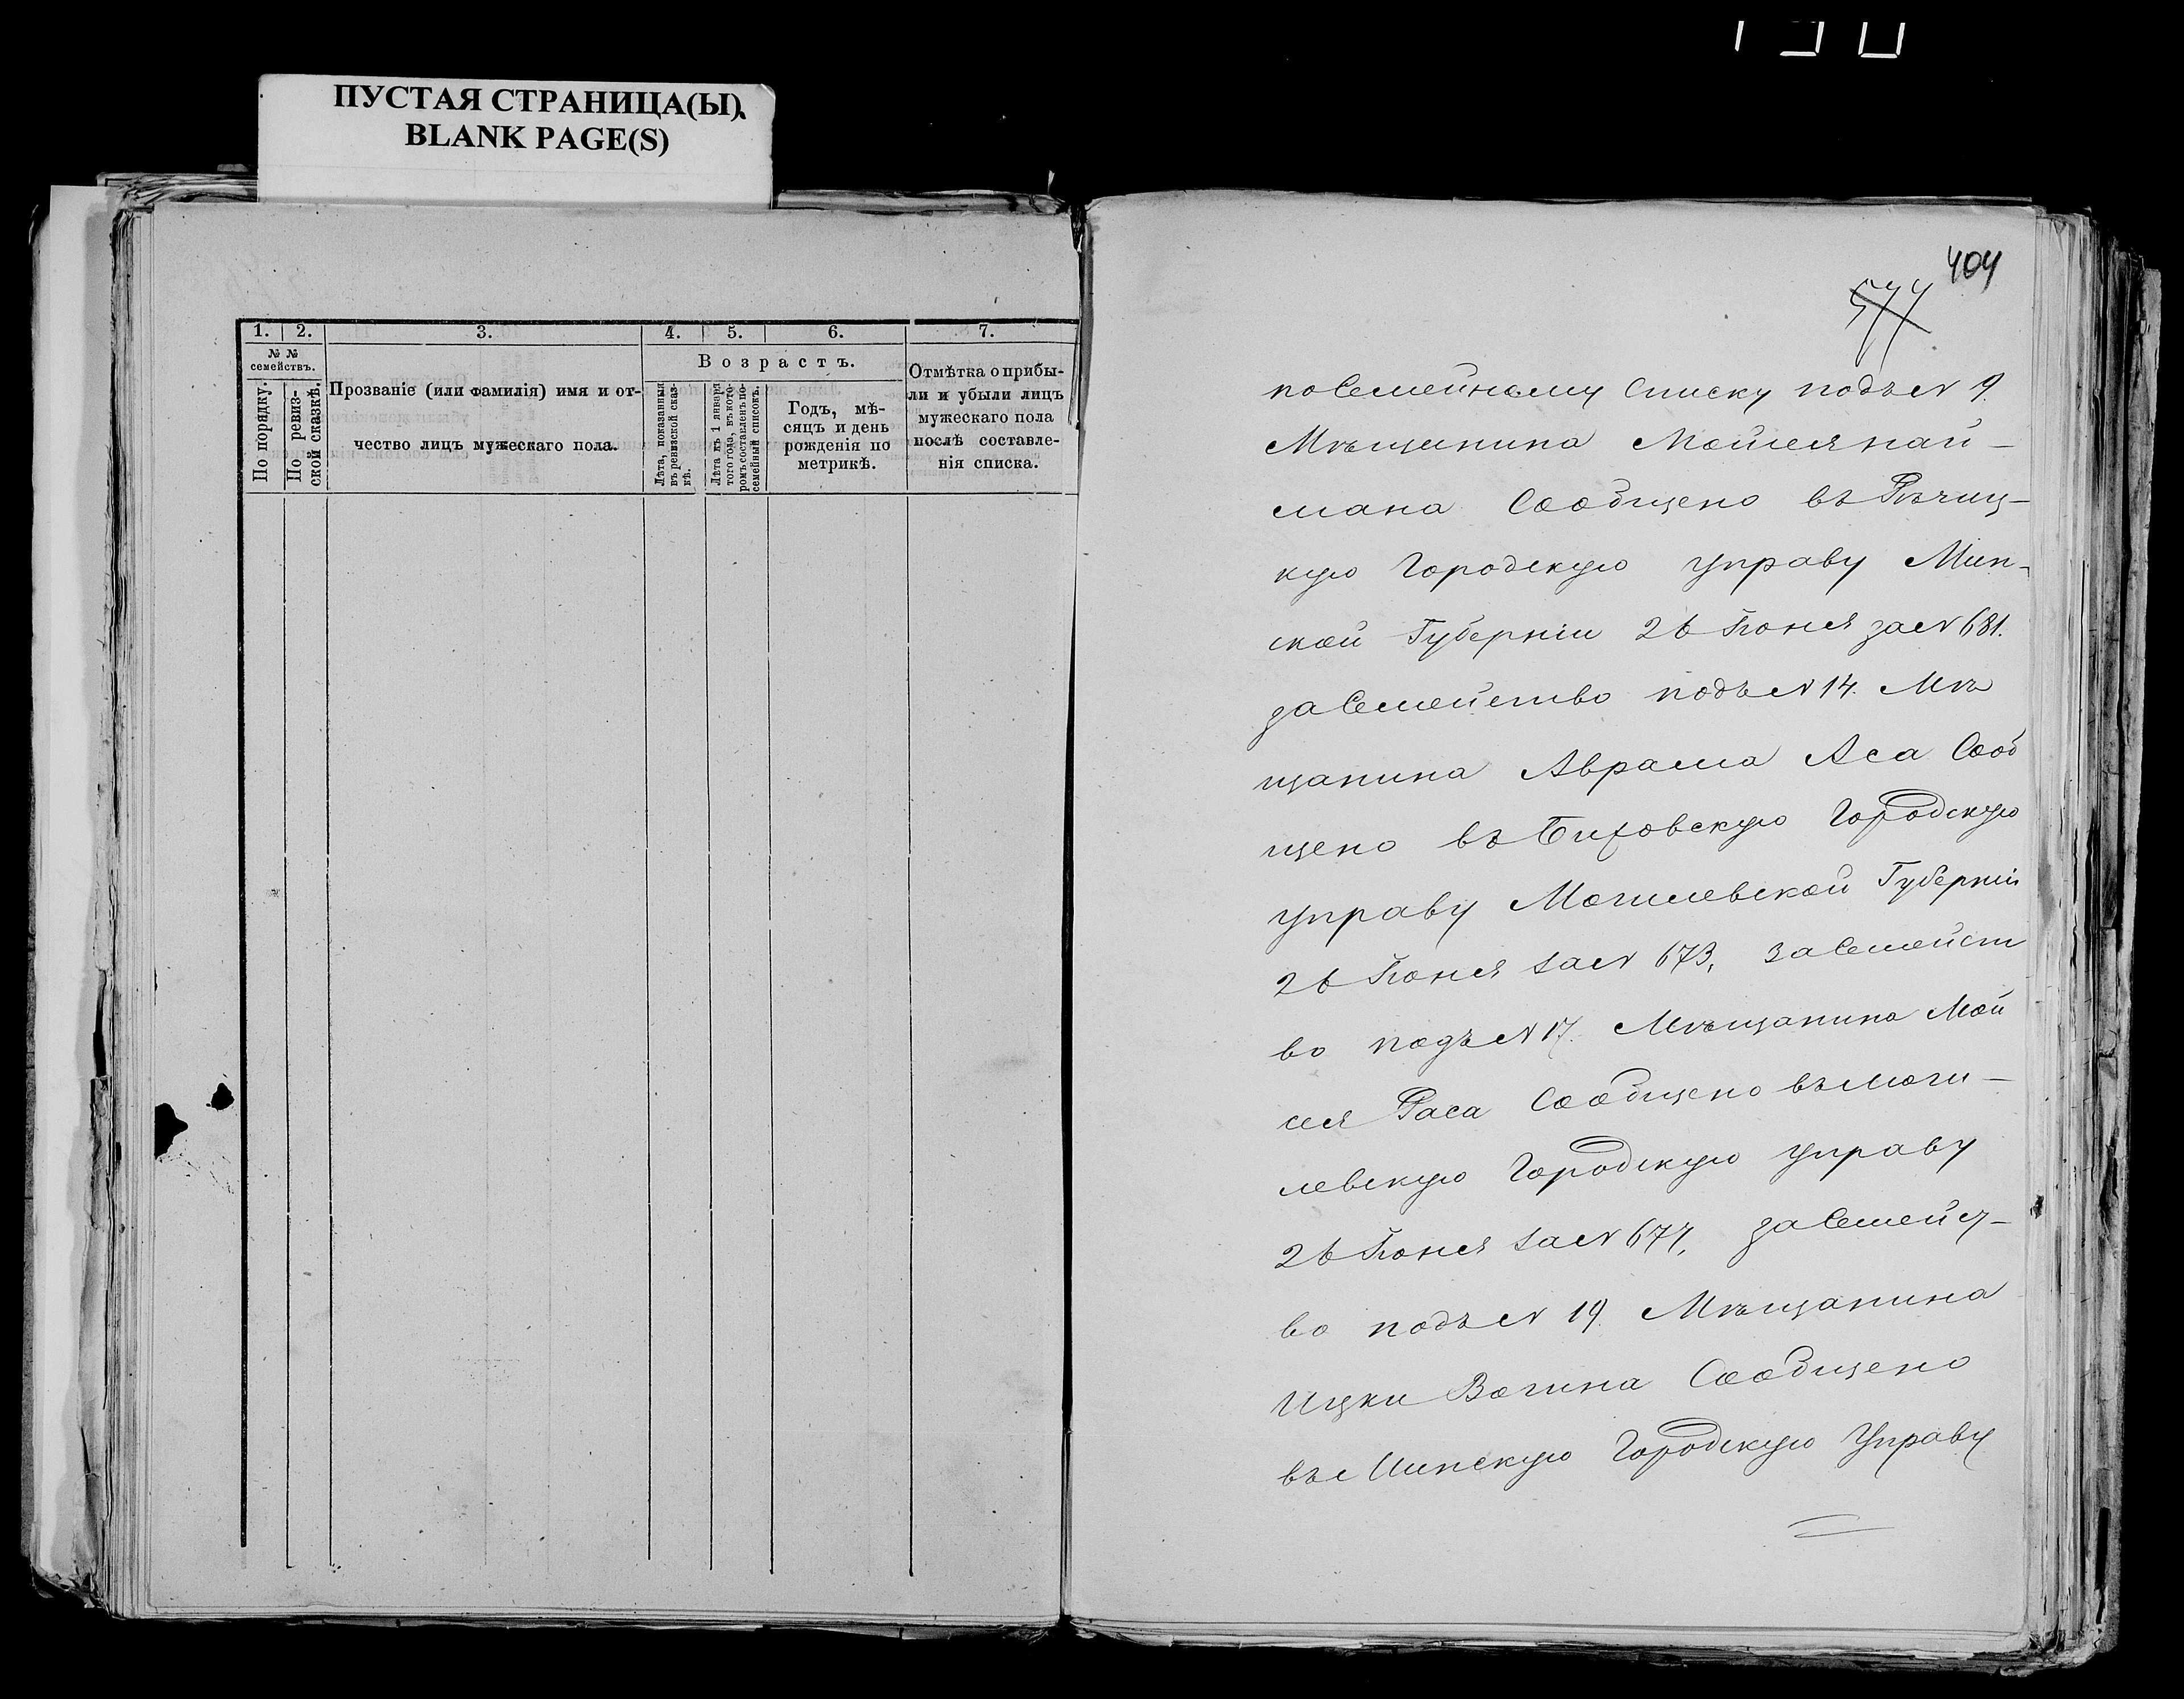 ПУСТАЯ СТРАНИЦА(Ы).
BLANK PAGE(S)
1. 2. 3. 4. 5. 6. 7.
№ №
семействъ.
По порядку.
По ревиз-
ской сказкѣ.
Прозваніе (или фамилія) имя и от-
чество лицъ мужескаго пола.
Возрастъ.
Лѣта, показанныя
въ ревизской сказ-
кѣ.
Лѣта къ 1 января
того года, въ кото-
ромъ составленъ по-
семейный списокъ.
Годъ, мѣ-
сяцъ и день
рожденія по
метрикѣ.
Отмѣтка о прибы-
ли и убыли лицъ
мужескаго пола
послѣ составле-
нія списка.
404
577
по Семейному Списку подъ № 9.
Мѣщинина Мойшея най-
мана Сообщено въ Рѣчиц-
кую Городскую управу Мин-
ской Губерніи 26 Іюня за № 681.
за Семейство подъ № 14. Мѣ
щанина Абрама Аса Сооб
щено въ Биховскую Городскую
управу Могилевской Губерніи
26 Іюня за № 673, за Семейст
во подъ № 17. Мѣщанина Мой
шея Раса Сообщено въ моги-
левскую Городскую управу
26 Іюня за № 677, за Семейст-
во подъ № 19. Мѣщанина
Ицки Вогина Сообщено
въ Минскую Городскую Управу